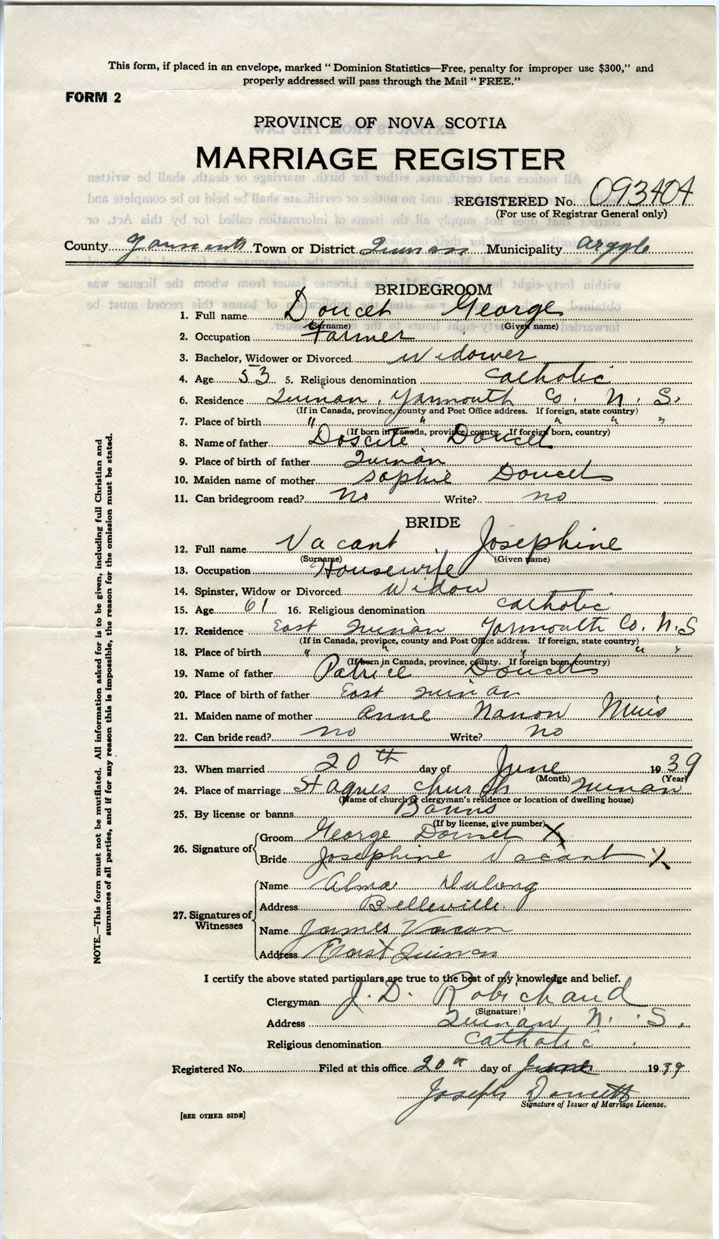 This form, if placed in an envelope, marked "Dominion Statistics—Free, penalty for improper use $300," and
properly addressed will pass through the Mail "FREE."
FORM 2
PROVINCE OF NOVA SCOTIA
MARRIAGE REGISTER
REGISTERED No. 093404
(For use of Registrar General only)
County Yarmouth Town or District Quinan Municipality Argyle
BRIDEGROOM
1. Full name Doucet George
(Surname) (Given name)
2. Occupation Farmer
3. Bachelor, Widower or Divorced Widower
4. Age 53 5. Religious denomination Catholic
6. Residence Quinan, Yarmouth Co. N. S.
(If in Canada, province, county and Post Office address. If foreign, state country)
7. Place of birth " " " " "
(If born in Canada, province, county. If foreign born, country)
8. Name of father Doucet
9. Place of birth of father Quinan
10. Maiden name of mother Sophie Doucet
11. Can bridegroom read? No Write? no
BRIDE
12. Full name Vacant Josephine
(Surname) (Given name)
13. Occupation Housewife
14. Spinster, Widow or Divorced Widow
15. Age 61 16. Religious denomination Catholic
17. Residence East Quinan Yarmouth Co. N.S
(If in Canada, province, county and Post Office address. If foreign, state country)
18. Place of birth " " " "
(If born in Canada, province, county. If foreign born, country)
19. Name of father Patrice Doucet
20. Place of birth of father East Quinan
21. Maiden name of mother Anne Nanon Muis
22. Can bride read? no Write? no
23. When married 20th day of June 1939
(Month) (Year)
24. Place of marriage St Agnes church Quinan
(Name of church or clergyman's residence or location of dwelling house)
25. By license or banns Banns
(If by license, give number)
26. Signature of Groom George Doucet X
Bride Josephine Vacant X
27. Signatures of Witnesses
Name Alma Dulong
Address Belleville
Name James Vacon
Address East Quinan
I certify the above stated particulars are true to the best of my knowledge and belief.
Clergyman J. D. Robichaud
(Signature)
Address Quinan N. S.
Religious denomination Catholic
Registered No. Filed at this office 20th day of June 1939
Joseph Doucett
Signature of Issuer of Marriage License.
[SEE OTHER SIDE]
NOTE.—This form must not be mutilated. All information asked for is to be given, including full Christian and
surnames of all parties, and if for any reason this is impossible, the reason for the omission must be stated.